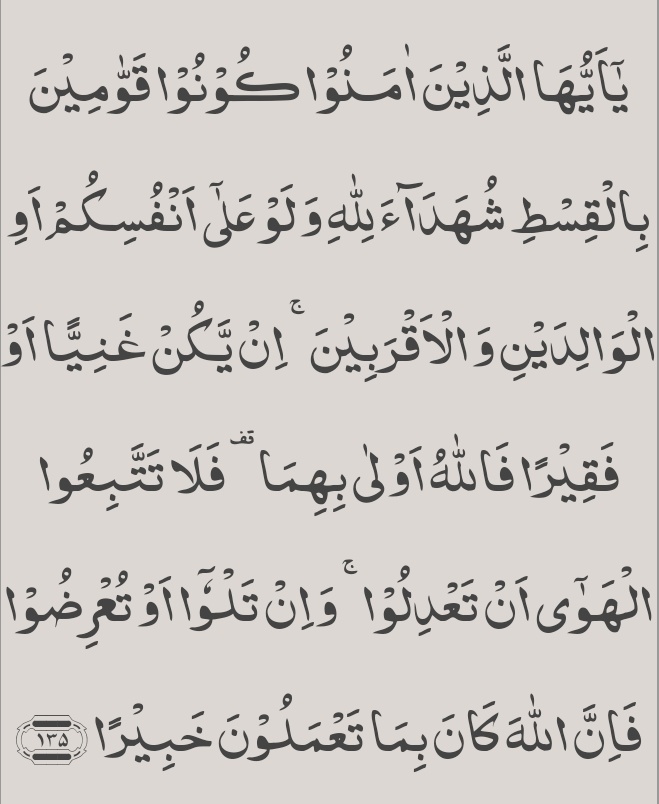 يٰۤاَيُّهَا الَّذِيْنَ اٰمَنُوْا كُوْنُوْا قَوّٰمِيْنَ
بِالْقِسْطِ شُهَدَآءَ لِلّٰهِ وَ لَوْ عَلٰۤى اَنْفُسِكُمْ اَوِ
الْوَالِدَيْنِ وَ الْاَقْرَبِيْنَ ۚ اِنْ يَّكُنْ غَنِيًّا اَوْ
فَقِيْرًا فَاللّٰهُ اَوْلٰى بِهِمَا قف فَلَا تَتَّبِعُوا
الْهَوٰۤى اَنْ تَعْدِلُوْا ۚ وَاِنْ تَلْوٗۤا اَوْ تُعْرِضُوْا
فَاِنَّ اللّٰهَ كَانَ بِمَا تَعْمَلُوْنَ خَبِيْرًا ۱۳۵